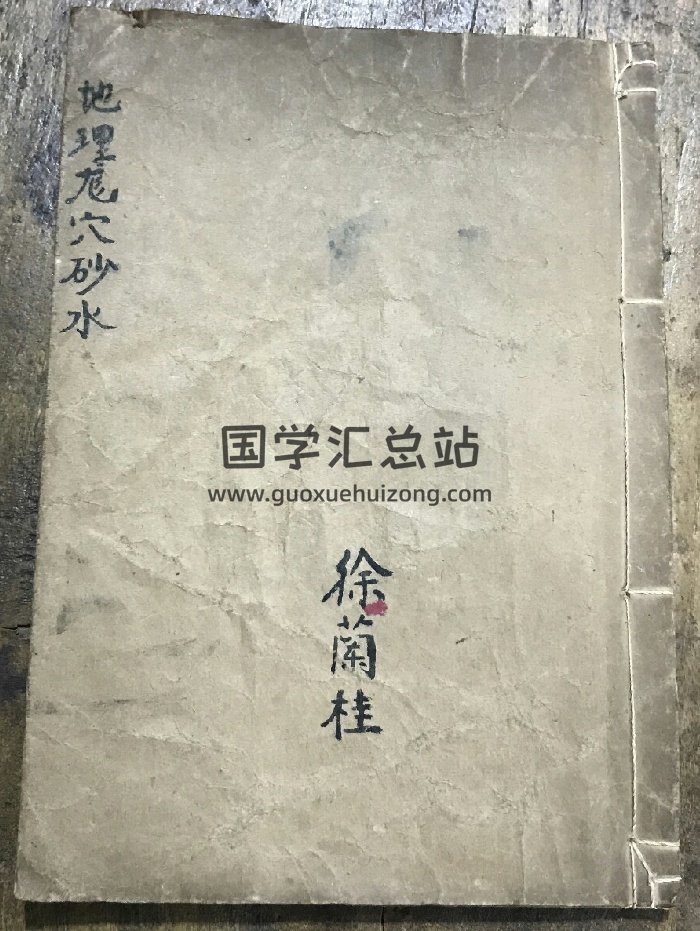 地理尨穴砂水
国学汇总站
www.guoxuehuizong.com
徐蘭桂